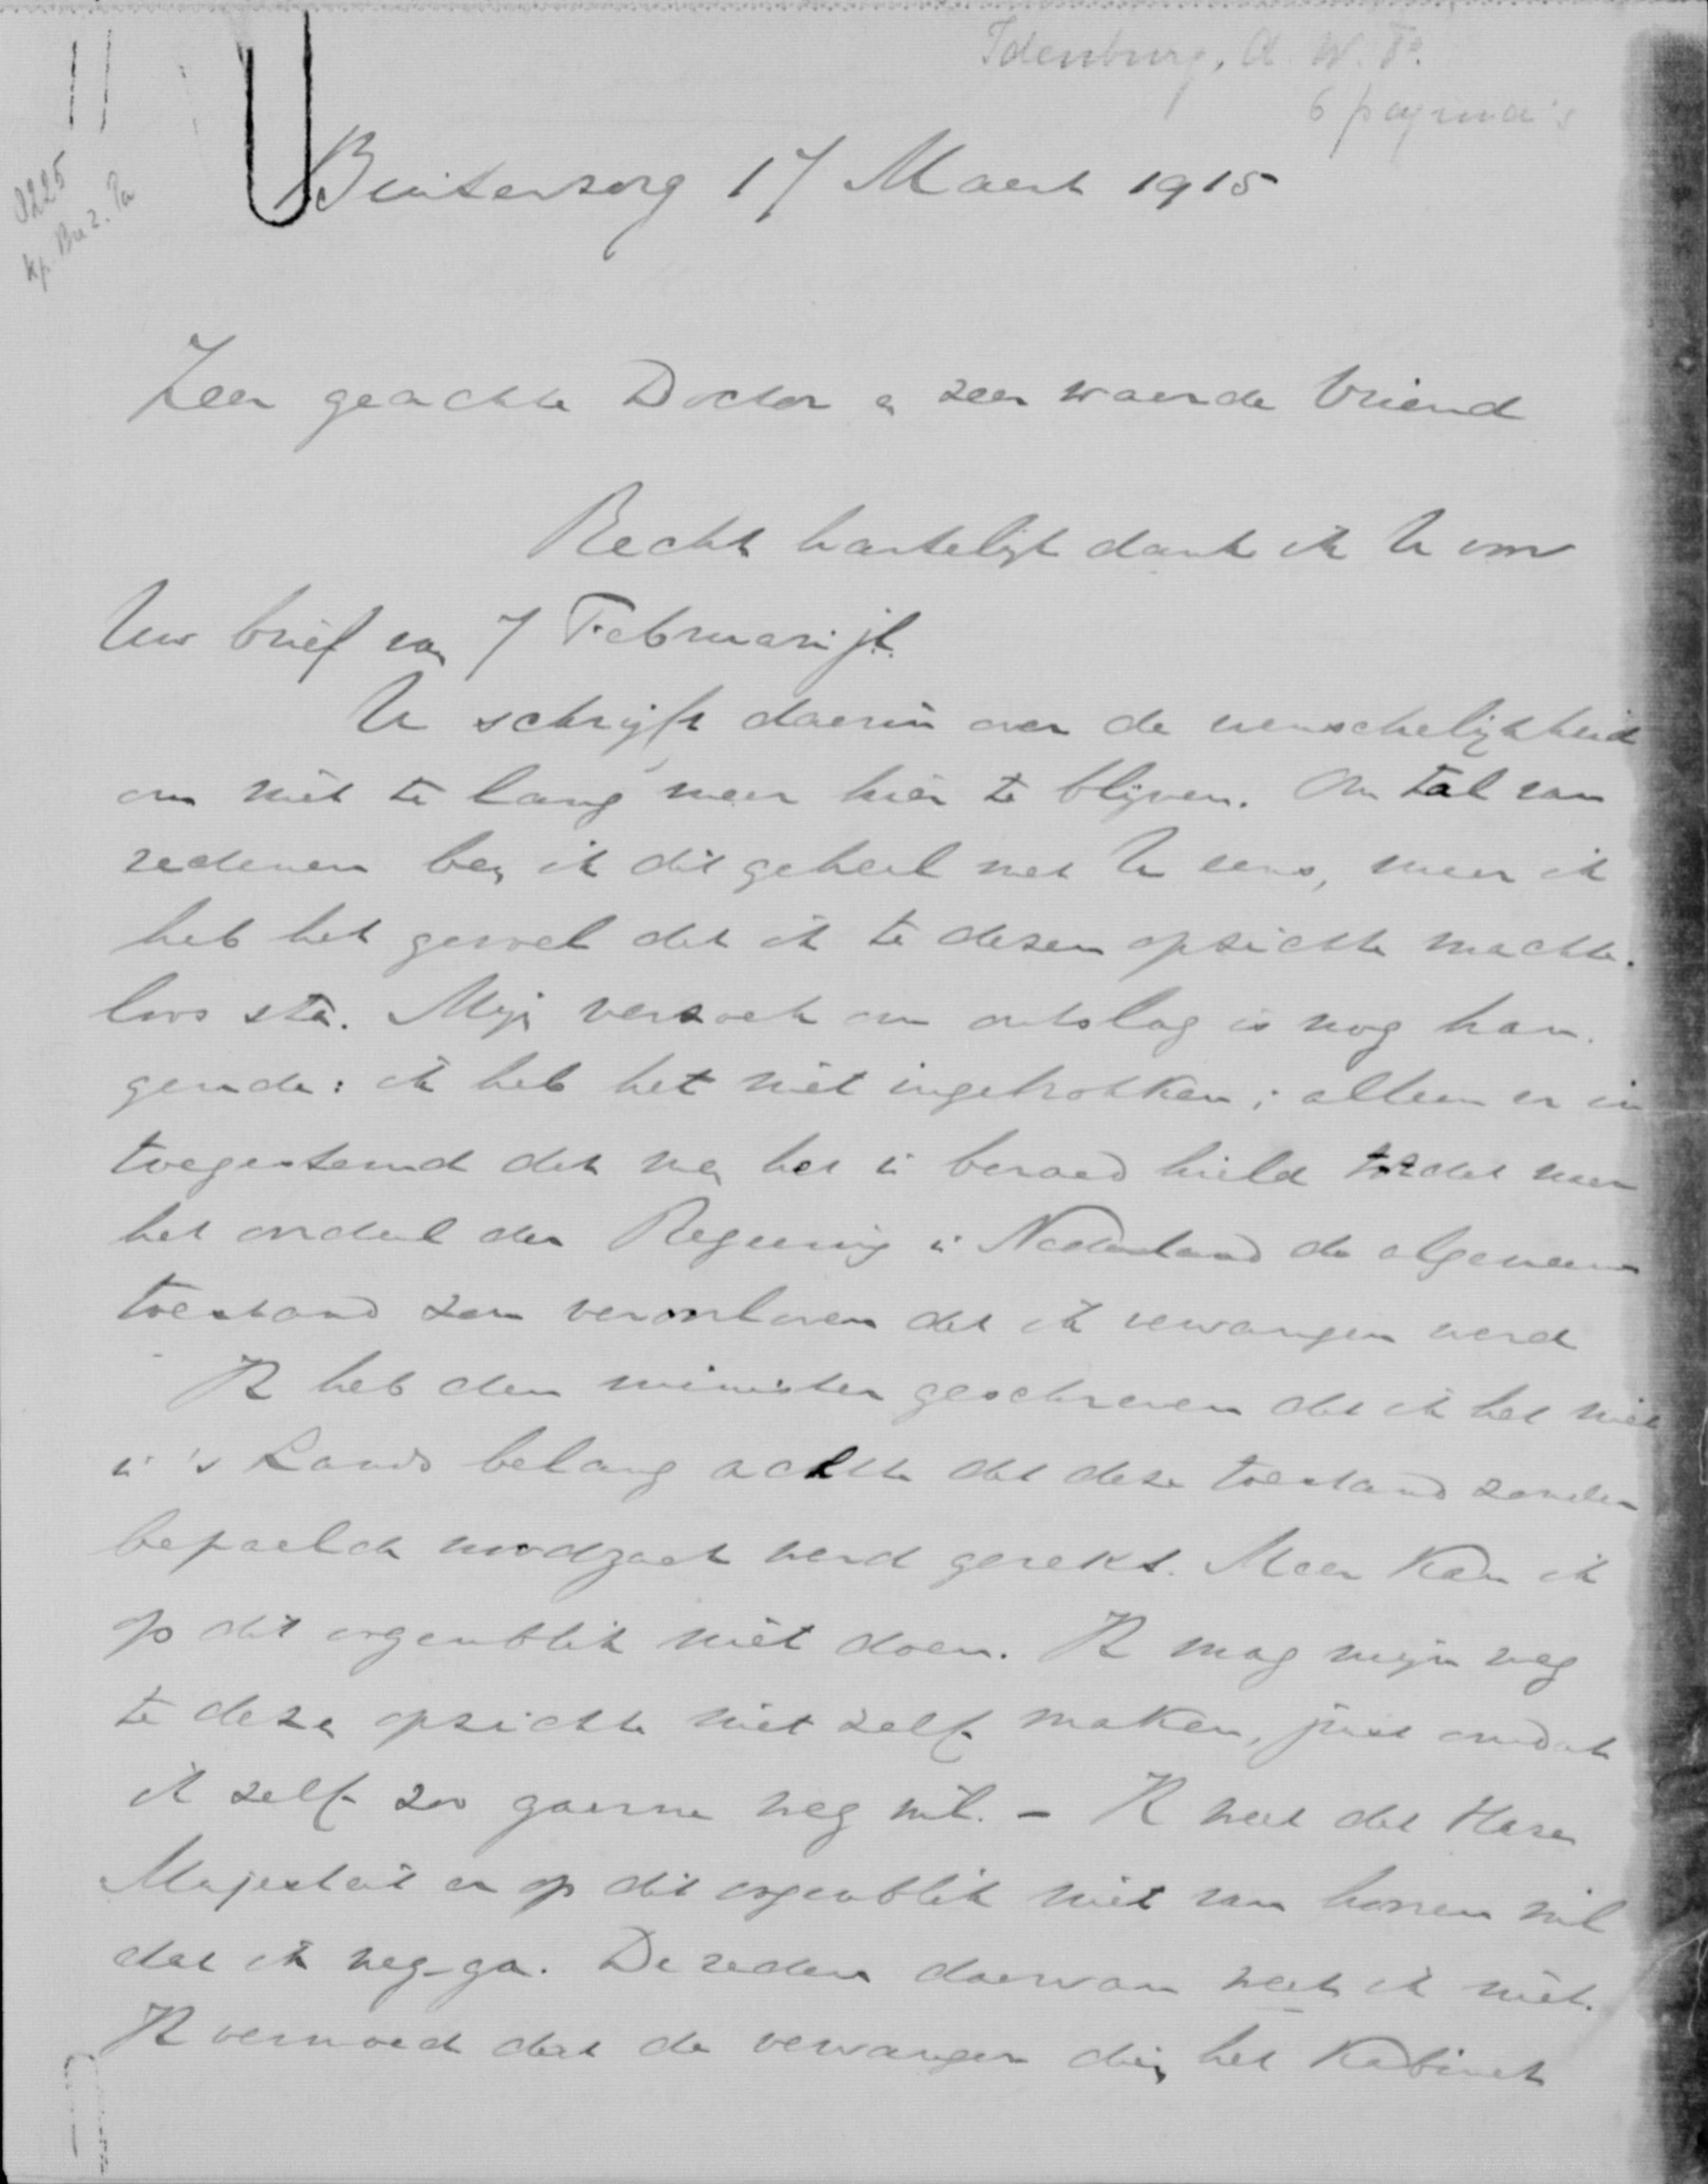 Idenburg, A. W. F.
6 pagina's
Buitenzorg 17 Maart 1915
Zeer geachte Doctor en zeer waarde Vriend
Recht hartelijk dank ik U voor
Uw brief van 7 Februari jl.
U schrijft daarin over de wenschelijkheid
om niet te lang meer hier te blijven. Om tal van
redenen ben ik dit geheel met U eens, maar ik
heb het gevoel dat ik te dezen opzichte machte-
loos sta. Mijn verzoek om ontslag is nog han-
gende: ik heb het niet ingetrokken; alleen er in
toegestemd dat men het in beraad hield totdat naar
het oordeel der Regeering in Nederland de algemeene
toestand zou veroorloven dat ik vervangen werd
Ik heb den minister geschreven dat ik het niet
in 's Lands belang achtte dat deze toestand zonder
bepaalde noodzaak werd gerekt. Meer kan ik
op dit oogenblik niet doen. Ik mag mijn weg
te dezen opzichte niet zelf maken, juist omdat
ik zelf zoo gaarne weg wil. - Ik weet dat Hare
Majesteit er op dit oogenblik niet van hooren wil
dat ik weg-ga. De reden daarvan weet ik niet.
Ik vermoed dat de vervanger dien het Kabinet